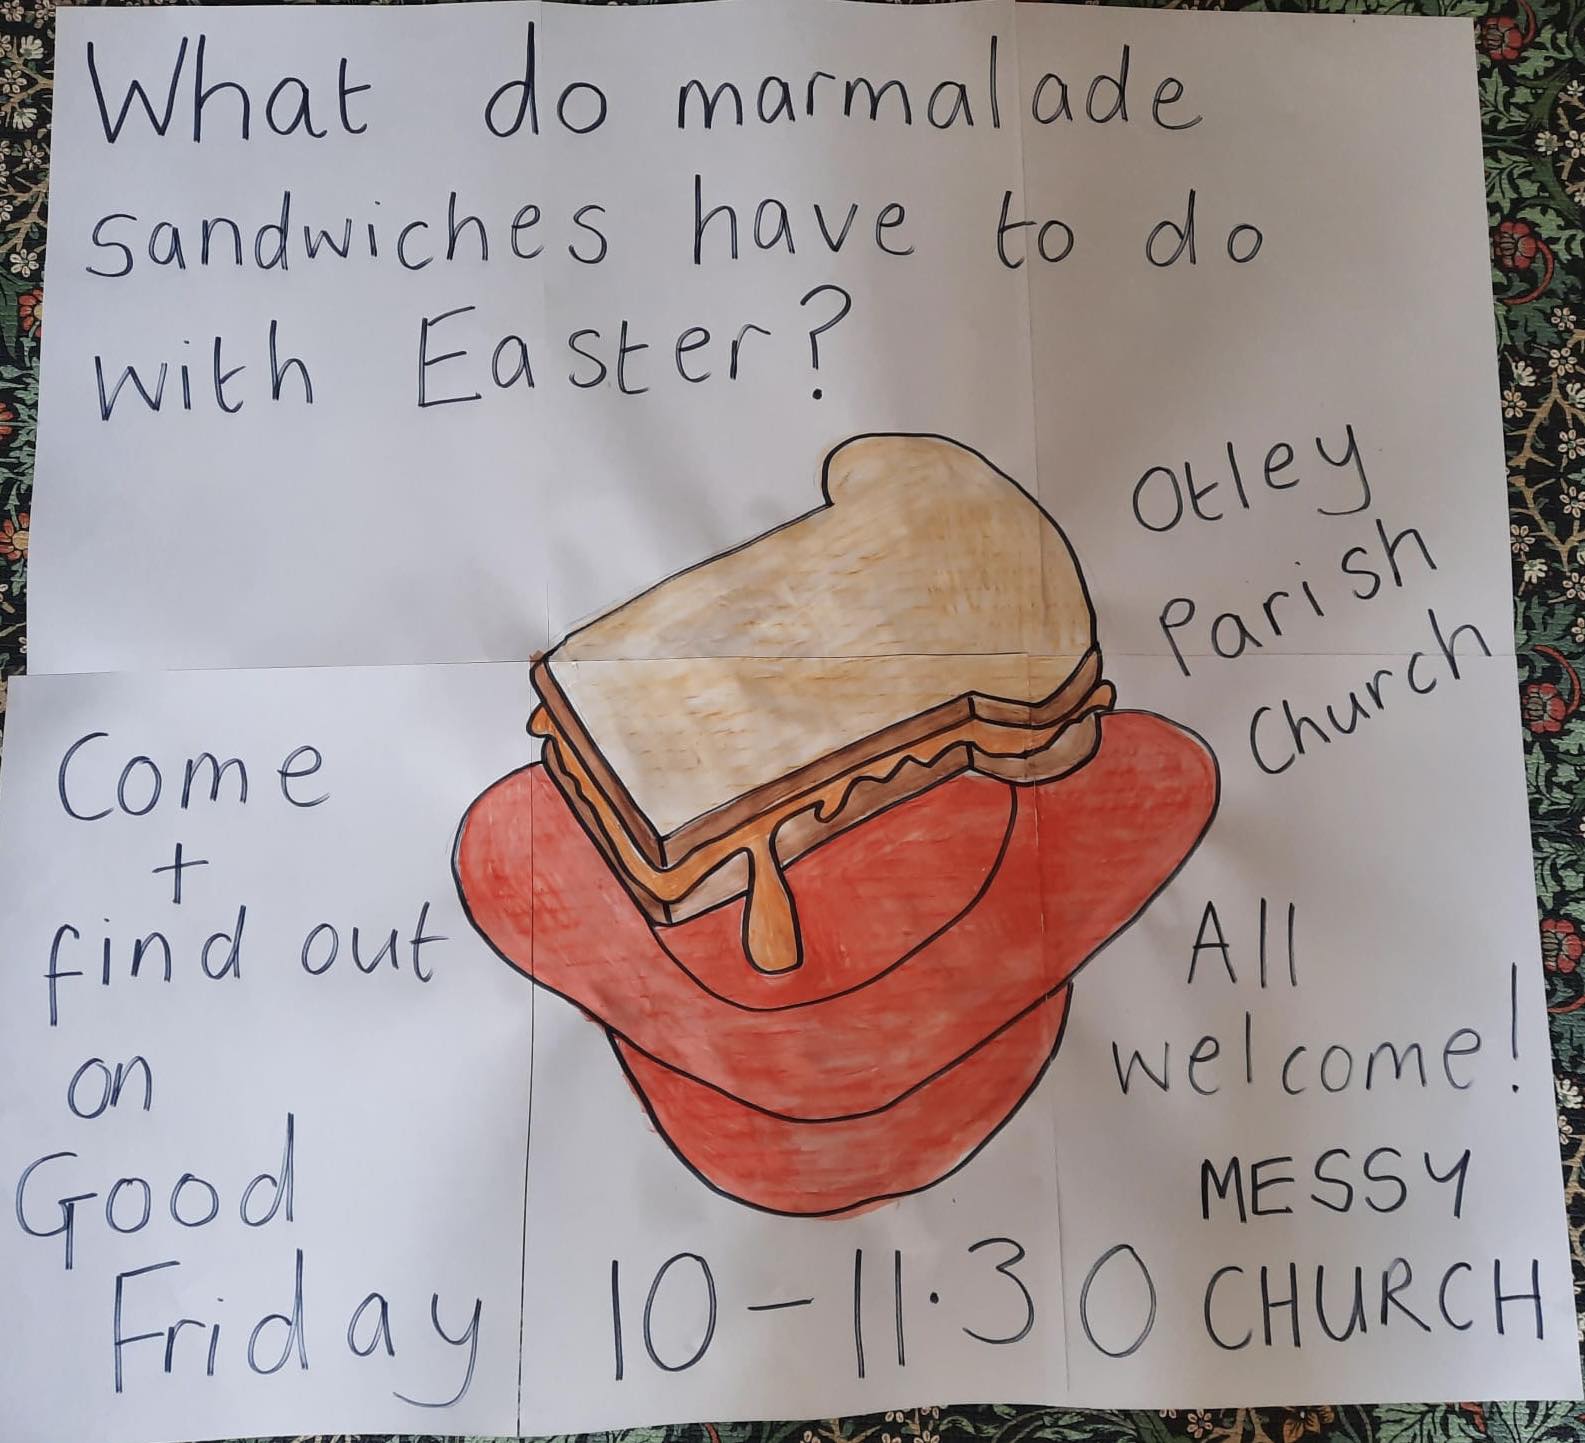 What do marmalade
sandwiches have to do
with Easter?
Otley
Parish
Church
Come
+
find out
on
Good
Friday 10-11.30
All
welcome!
MESSY
CHURCH